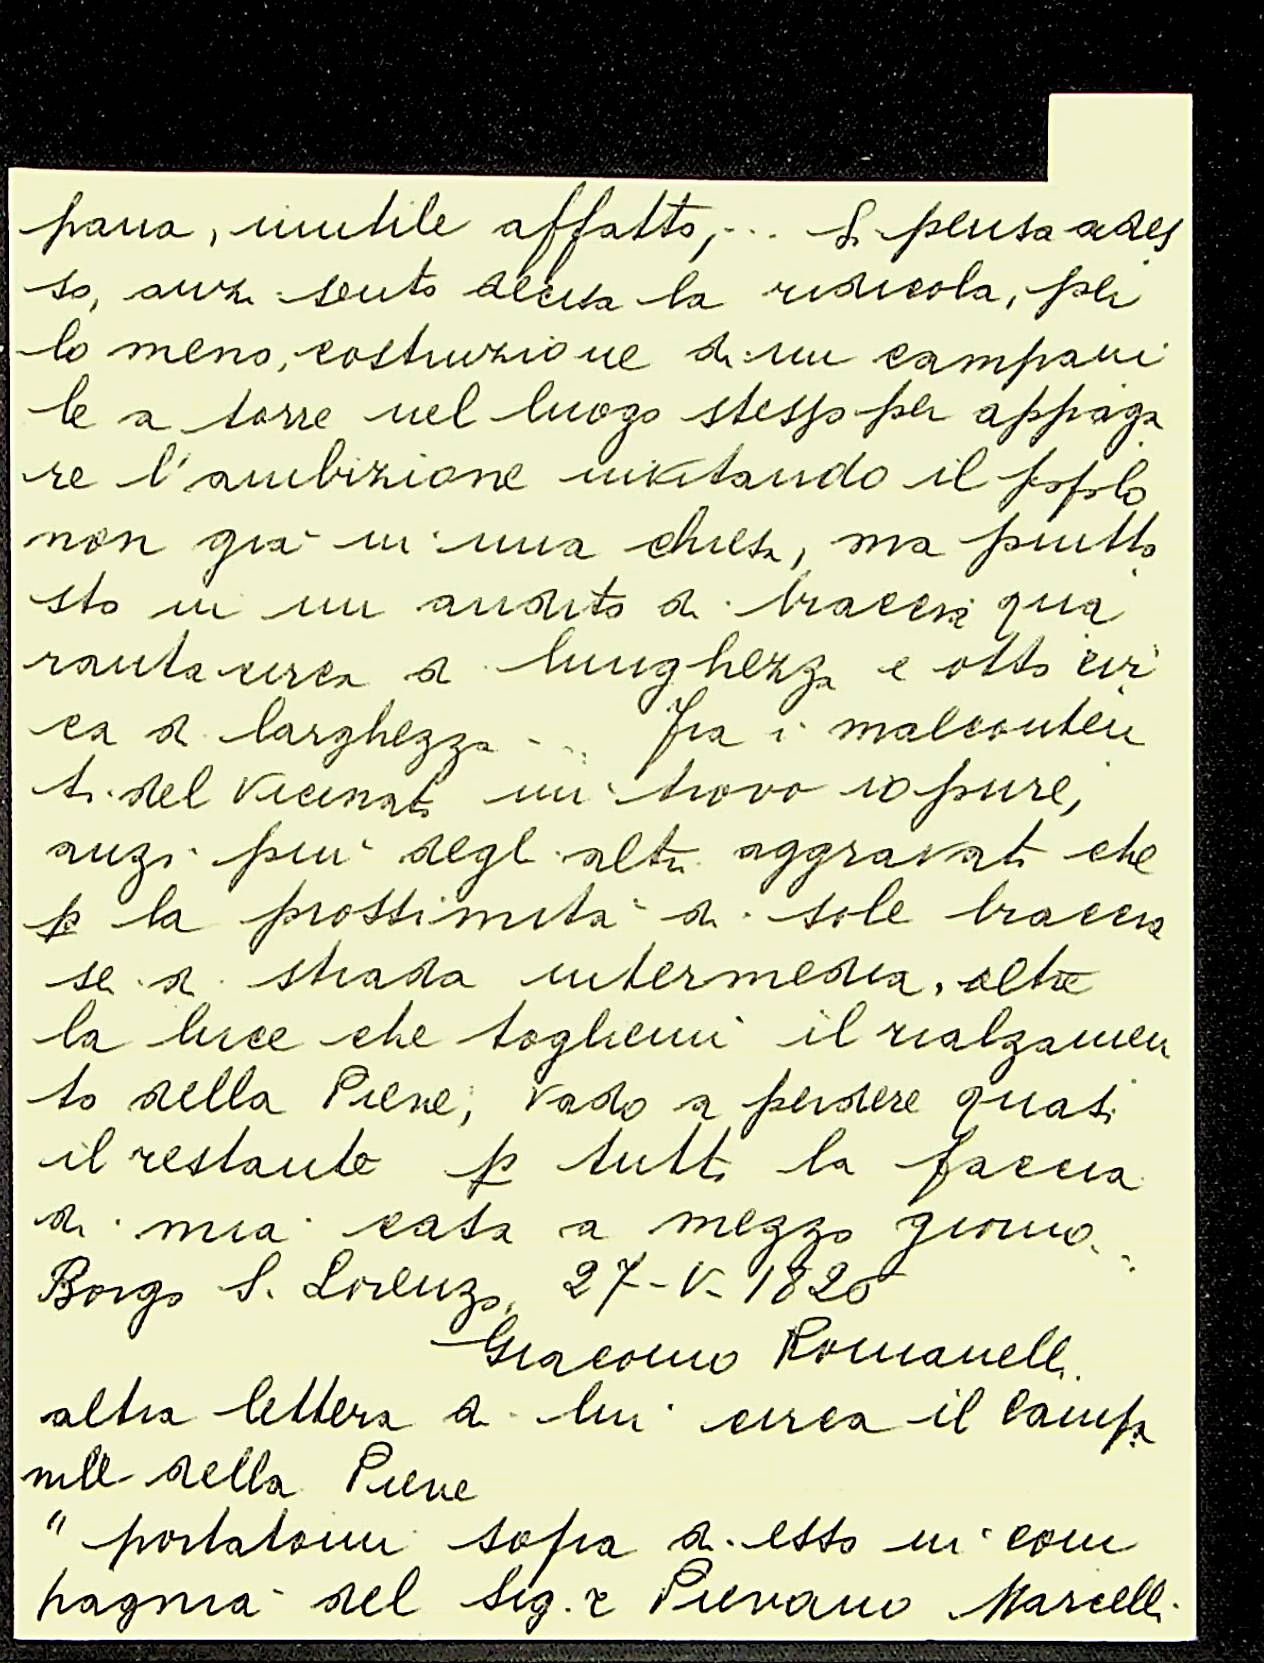 pana, inutile affatto,... Si pensa ades
so, anzi sento decisa la ridicola, per
lo meno, costruzione di un campani
le a torre nel luogo stesso per appaga
re l'ambizione invitando il popolo
non già in una chiesa, ma piutto
sto in un andito di braccia qua
ranta circa di lunghezza e otto cir
ca di larghezza ... Fra i malconten
ti del vicinato mi trovo io pure,
anzi più degli altri aggravato che
p la prossimità di sole braccia
sei di strada intermedia, oltre
la luce che togliemi il rialzamen
to della Pieve, vado a perdere quasi
il restante p tutta la faccia
di mia casa a mezzo giorno...
Borgo S. Lorenzo, 27-V-1820
Giacomo Romanelli.
altra lettera di lui circa il campa
nile della Pieve
" portatomi sopra di esso in com
pagnia del Sig.r Pievano Marcelli